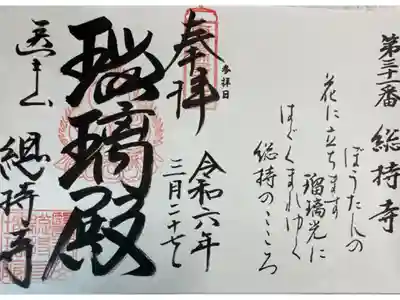 第三十一番 総持寺
ぼうたんの
花に立ちます
瑠璃光に
はぐくまれゆく
総持のこころ
奉拝
参拝日
令和六年
三月二十七日
瑠璃殿
西国
總持寺